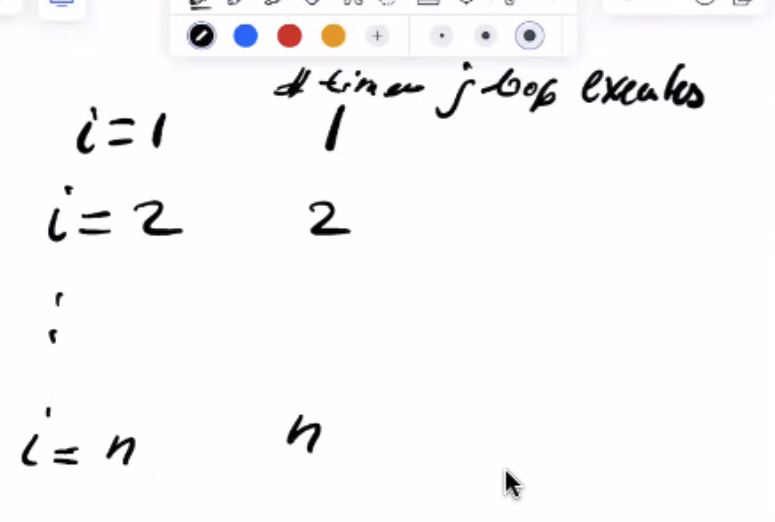 # times j loop executes
i = 1 1
i = 2 2
:
i = n n